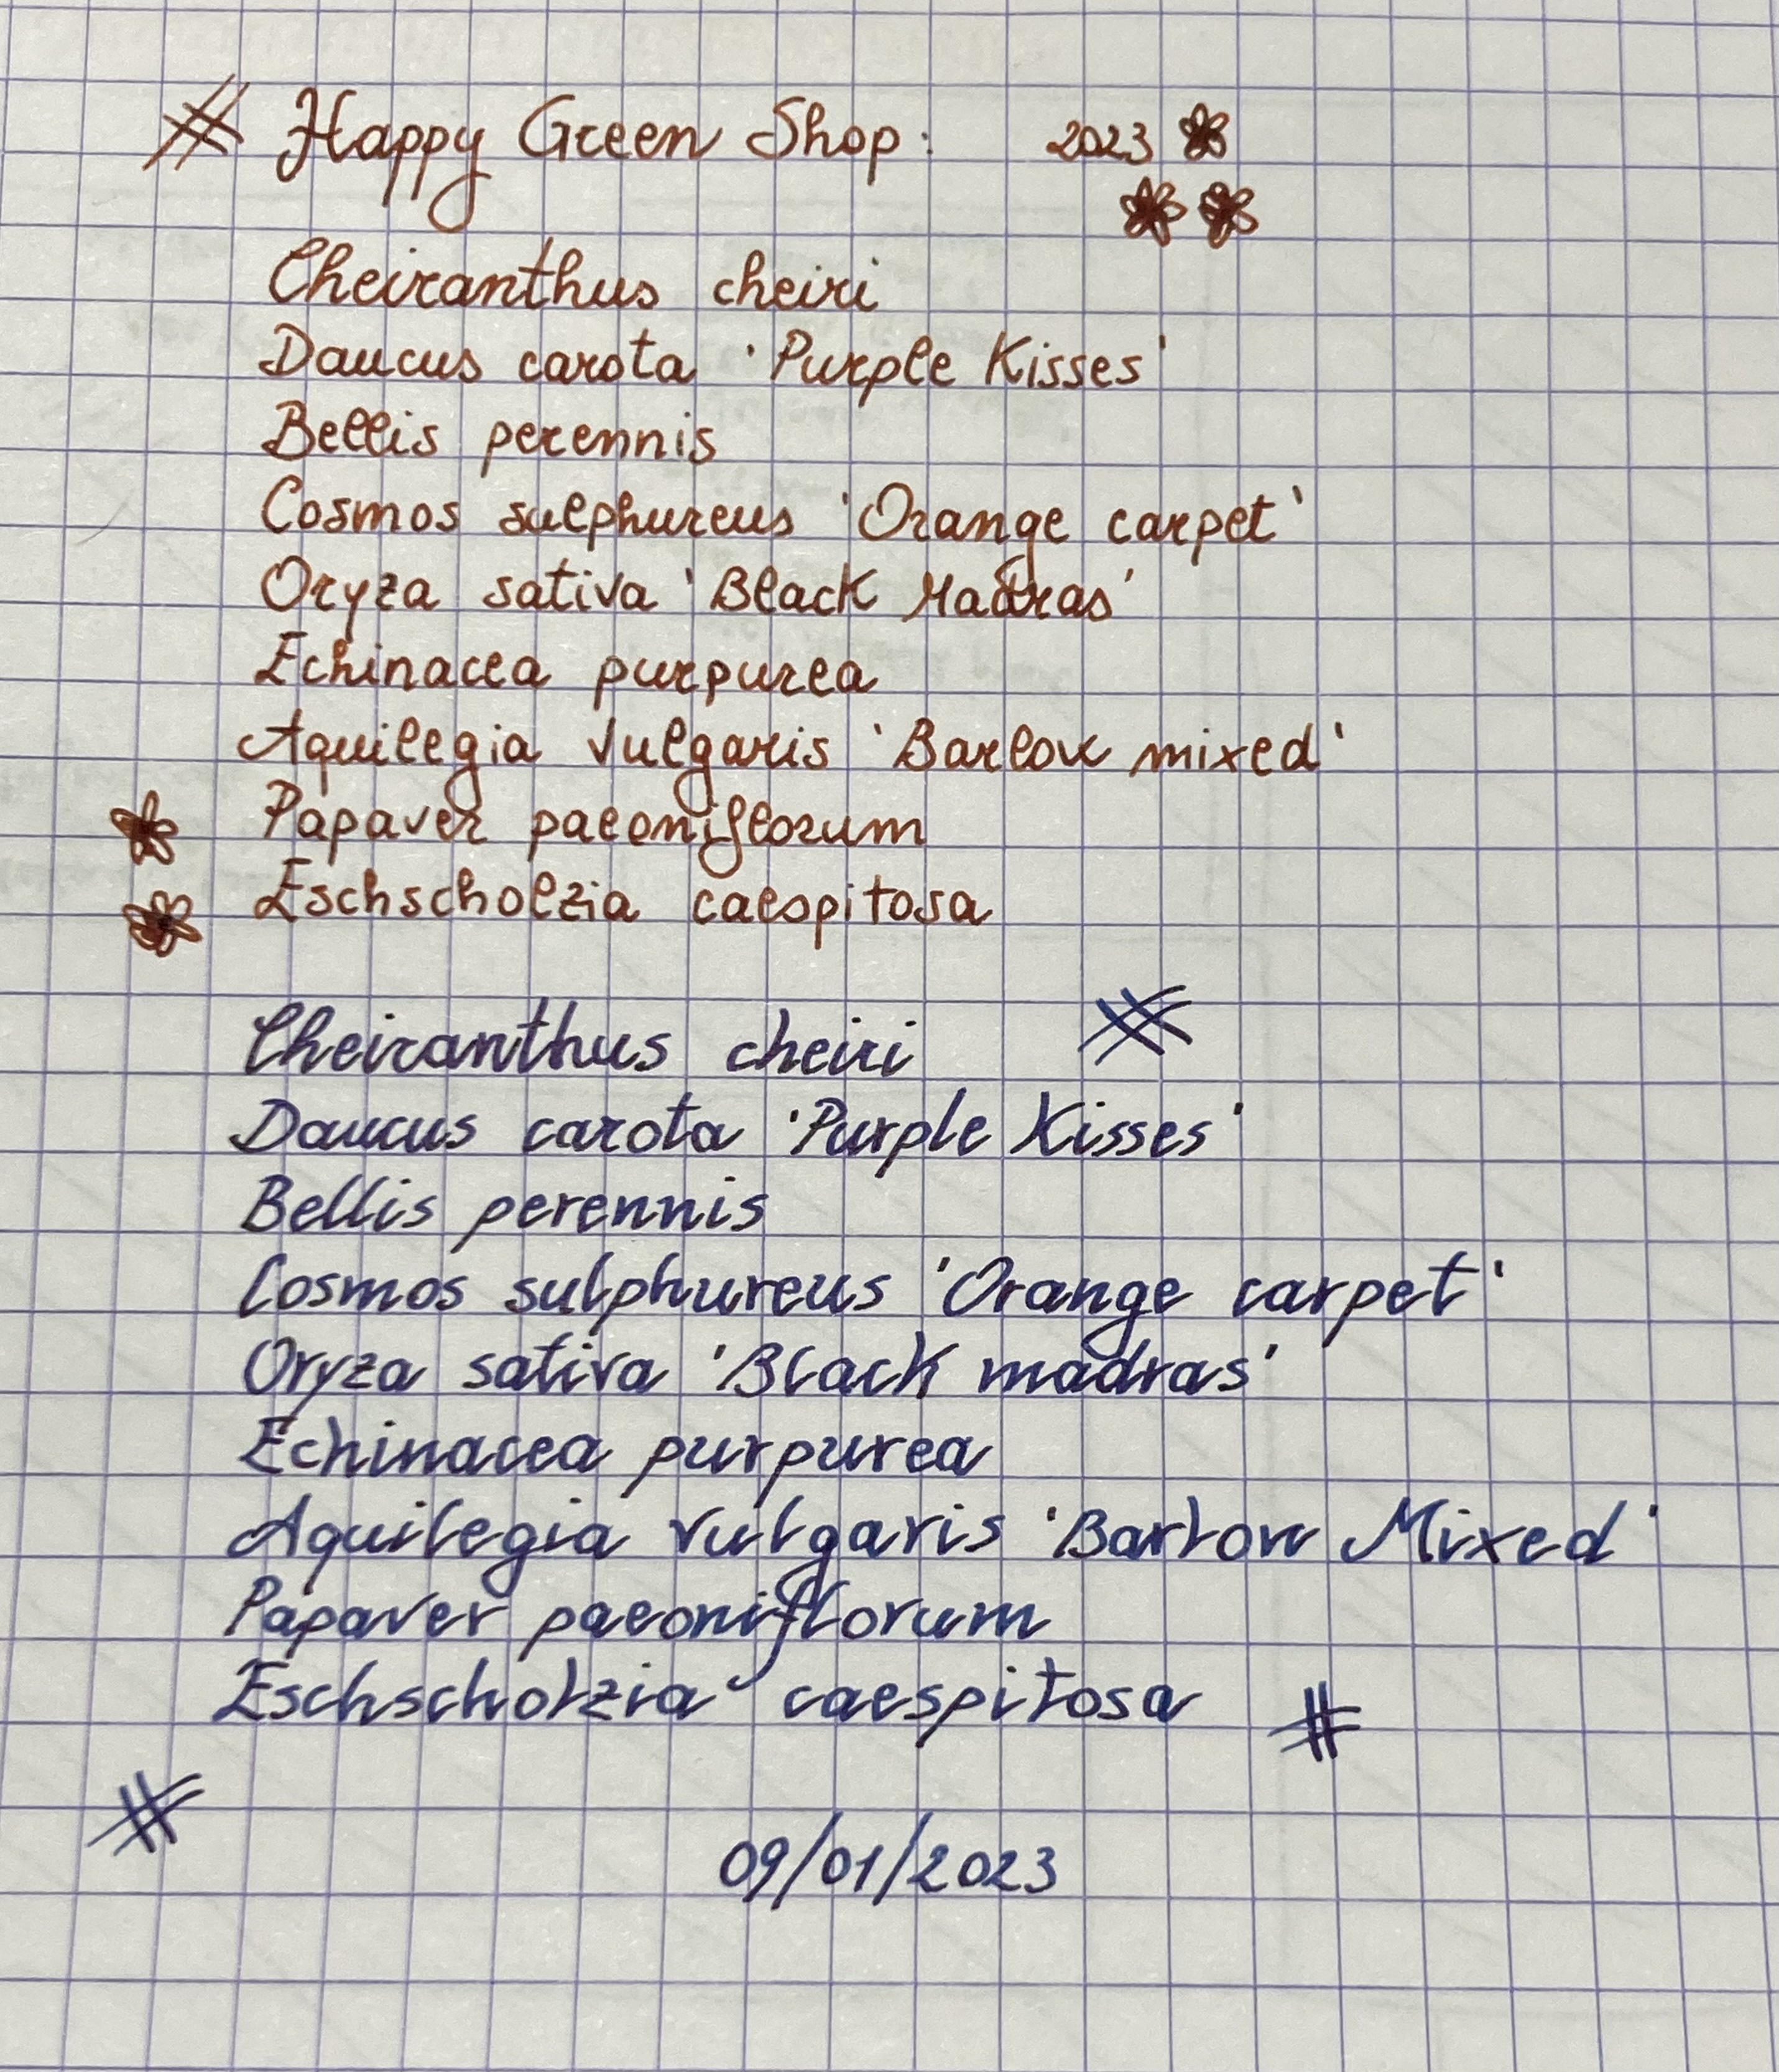 # Happy Green Shop: 2023
Cheiranthus cheiri
Daucus carota 'Purple Kisses'
Bellis perennis
Cosmos sulphureus 'Orange carpet'
Oryza sativa 'Black Madras'
Echinacea purpurea
Aquilegia vulgaris 'Barlow mixed'
Papaver paeoniflorum
Eschscholzia caespitosa
Cheiranthus cheiri #
Daucus carota 'Purple Kisses'
Bellis perennis
Cosmos sulphureus 'Orange carpet'
Oryza sativa 'Black madras'
Echinacea purpurea
Aquilegia vulgaris 'Barlow Mixed'
Papaver paeoniflorum
Eschscholzia caespitosa #
#
09/01/2023